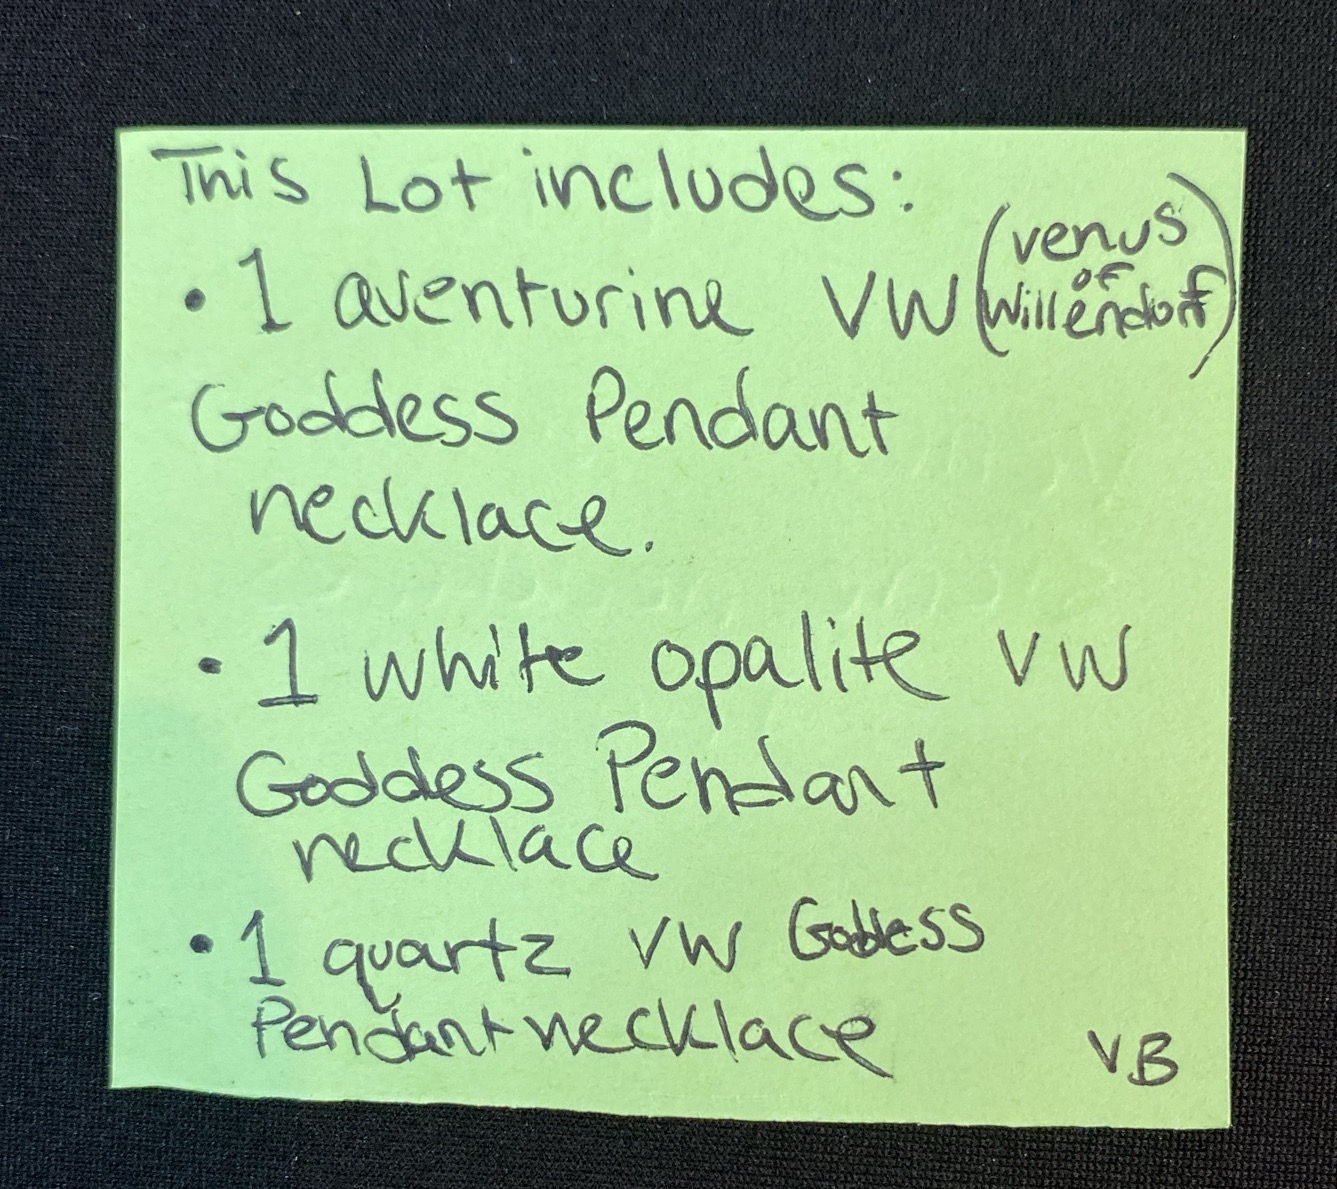 This Lot includes:
• 1 aventurine VW (venus of Willendorf)
Goddess Pendant
necklace.
• 1 white opalite VW
Goddess Pendant
necklace
• 1 quartz VW Goddess
Pendant necklace
VB